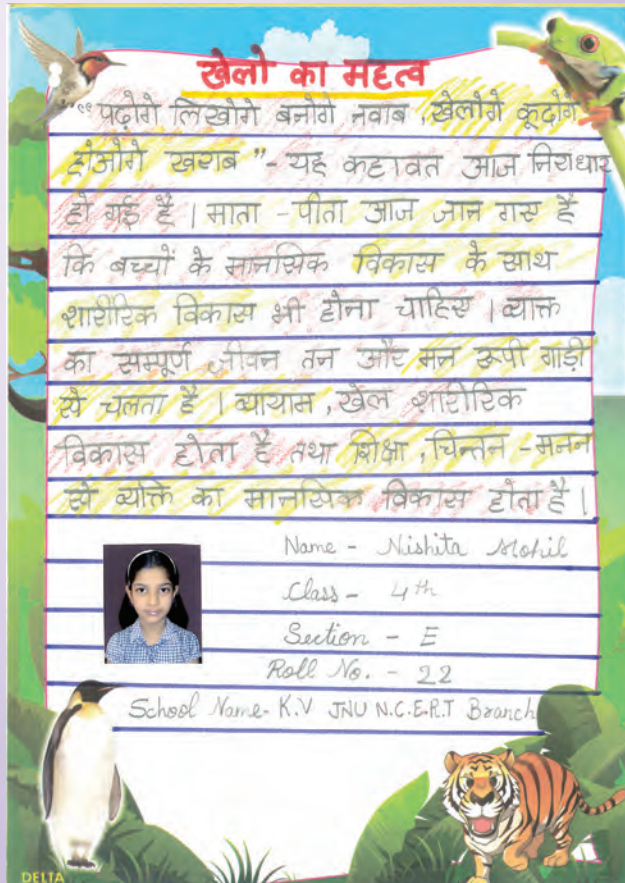 खेलो का महत्व
"पढ़ोगे लिखोगे बनोगे नवाब, खेलोगे कूदोगे
होओगे खराब" - यह कहावत आज निराधार
हो गई है । माता - पीता आज जान गए है
कि बच्चों के मानसिक विकास के साथ
शारीरिक विकास भी होना चाहिए । व्यक्ति
का सम्पूर्ण जीवन तन और मन रूपी गाड़ी
से चलता है । व्यायाम, खेल शारीरिक
विकास होता है तथा शिक्षा, चिन्तन - मनन
से व्यक्ति का मानसिक विकास होता है ।
Name - Nishita Mohil
Class - 4th
Section - E
Roll No. - 22
School Name - K.V JNU N.C.E.R.T Branch
DELTA